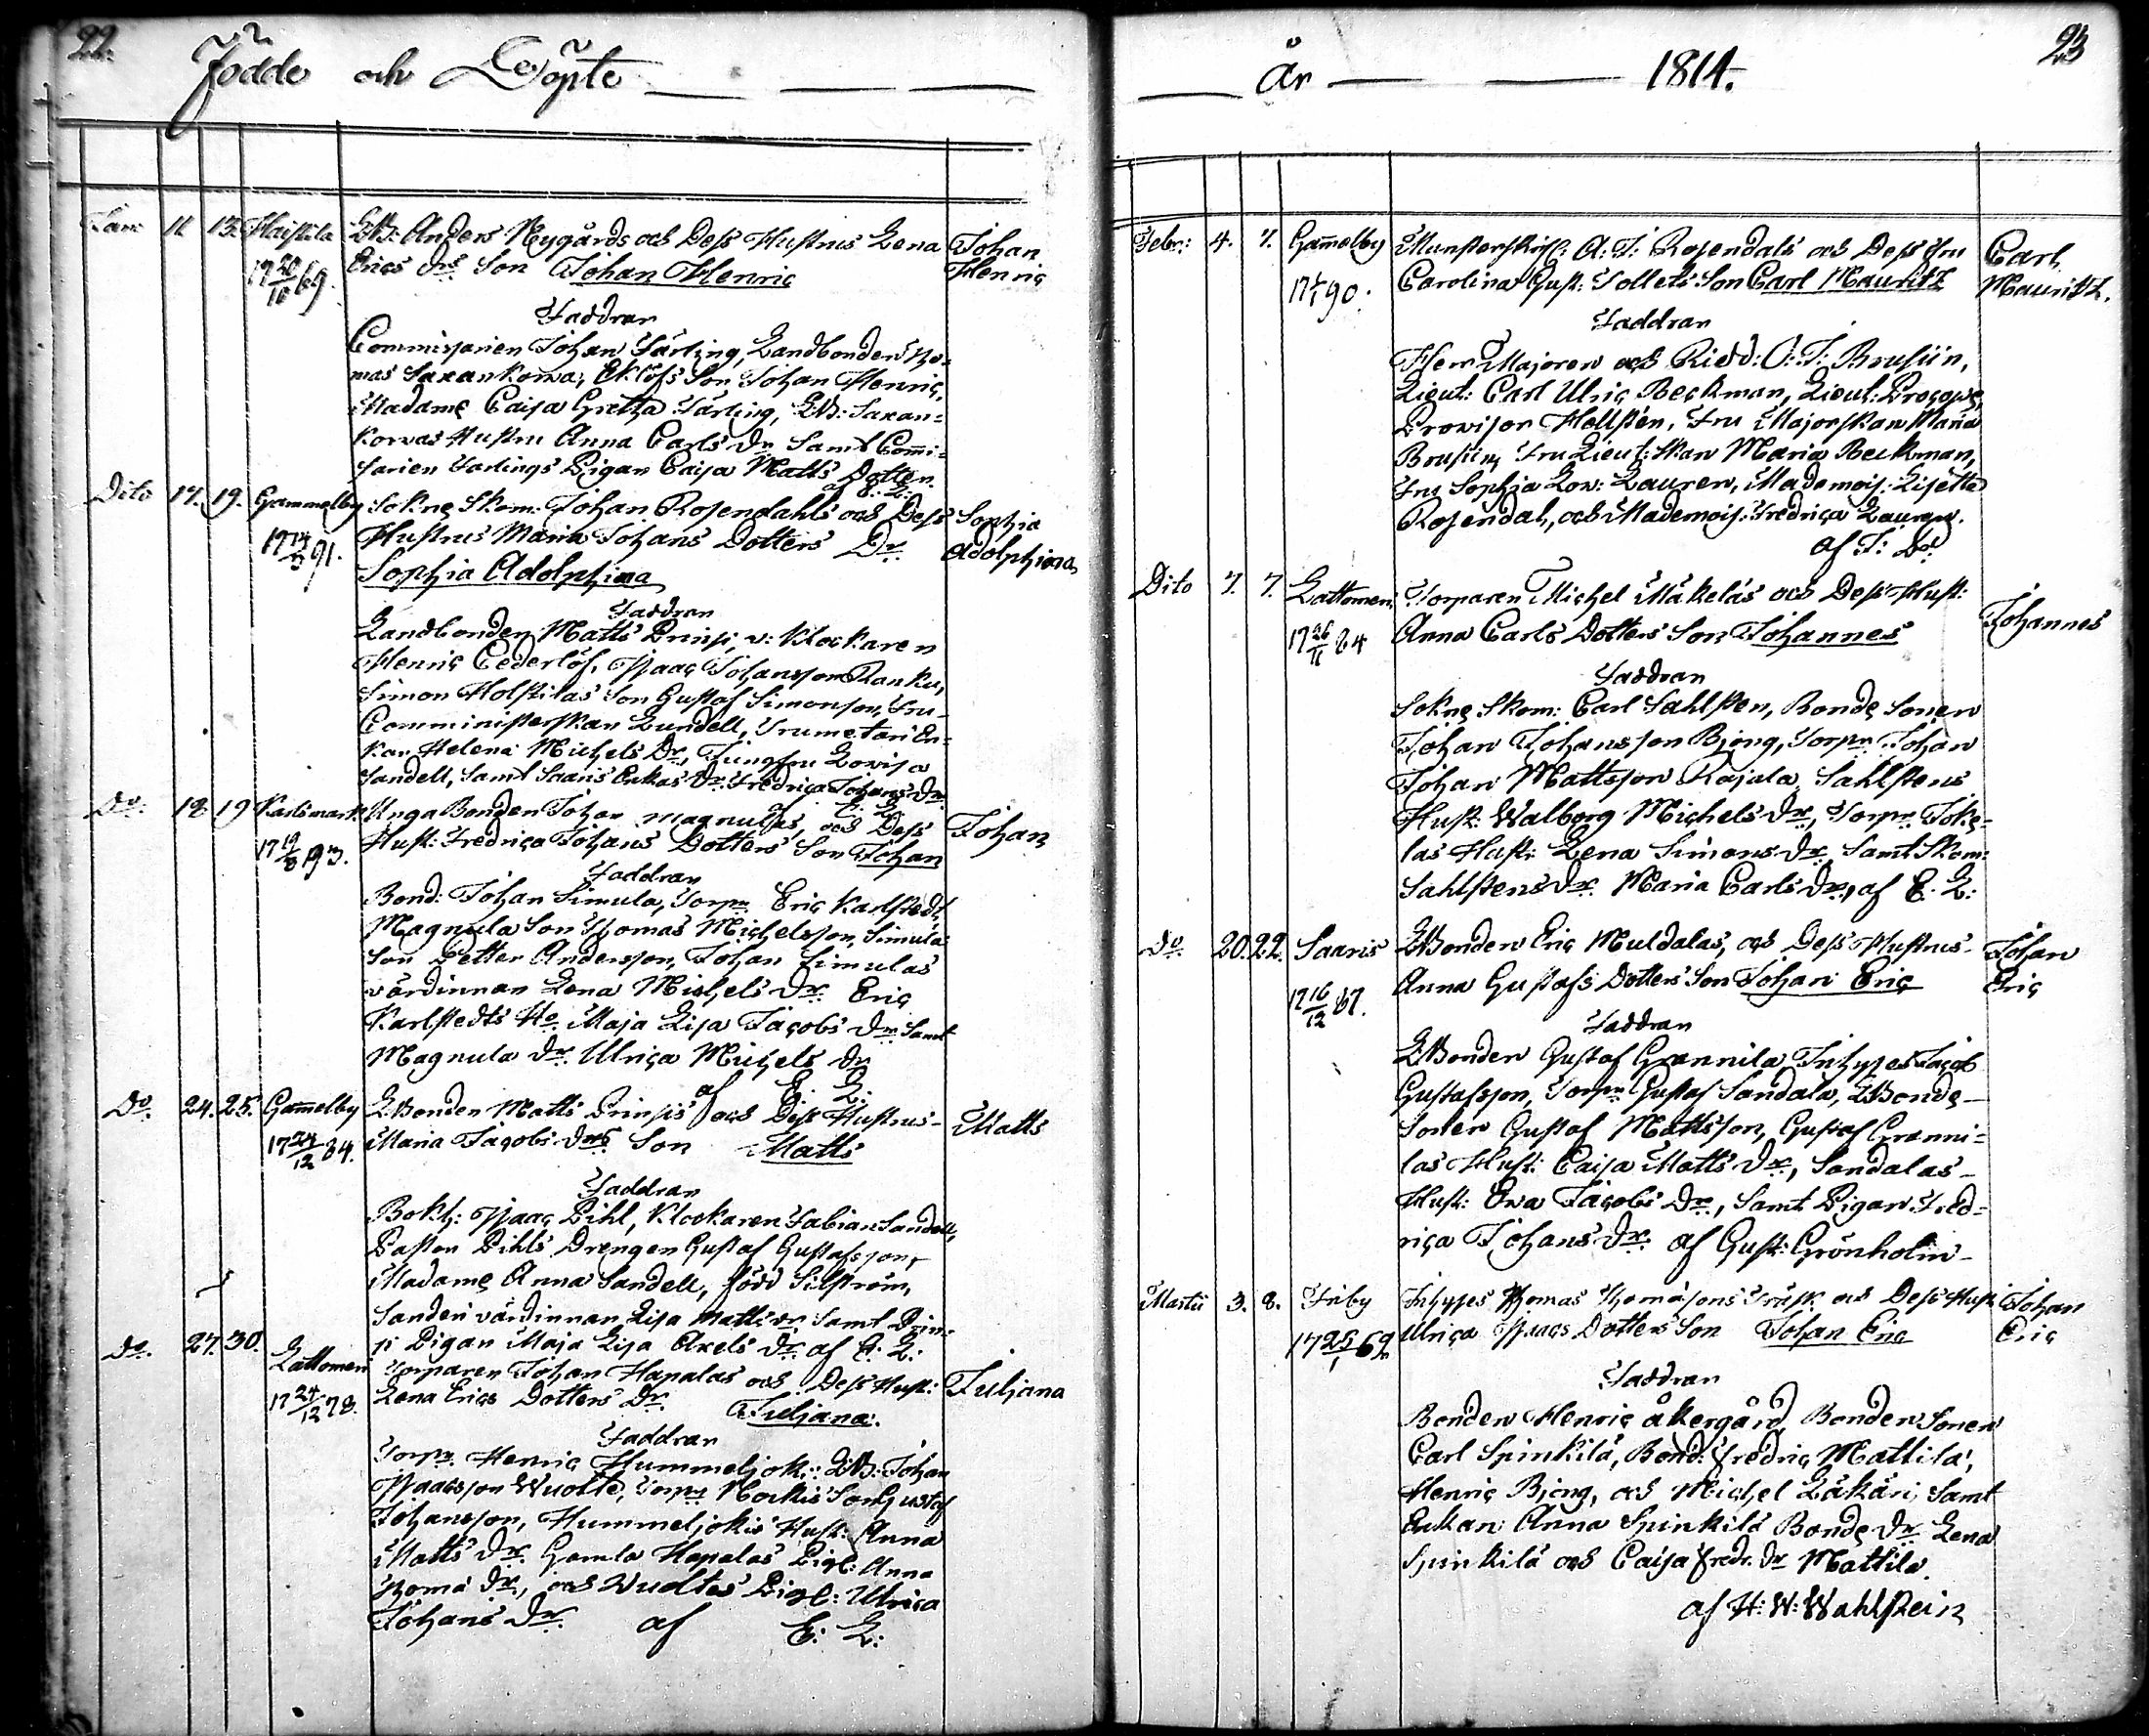 22.
Födde och Döpte
Jan: 11 13. Haistila LB: Anders Nygårds och Dess Hustrus Lena Johan
17 20/10 69. Erics drs Son Johan Henric Henric
Faddran
Commissarien Johan Färling, Landbonden Tho-
mas Saxankorva, Eklöfs Son Johan Henric,
Madame Caisa Gretha Färling, LB: Saxan-
korvas Hustru Anna Carls dr Samt Com̄i-
sarien Farlings Pigan Caisa Matts Dotter.
af E: L:
Dito 17. 19. Gammelby Sokne Skom: Johan Rosendahls och Dess Sophia
17 91. Hustrus Maria Johans Dotters Dr. Adolphina
Sophia Adolphina
Faddran
Landbonden Matts Prinsi, v: Klockaren
Henric Cederlöf, Isaac Johansson Ranku,
Simon Holstilas Son Gustaf Simonson, Fru
Comministerskan Lundell,
kan Helena Michels Dr, Jungfru Lovisa
Sandell, Samt Saaris Enkas Dr. Fredrica Johans Dr.
af E. L.
Do. 18 19 Karlsmark Unga Bonden Johan Magnulas, och Dess Johan
17 19/8 93. Hust: Fredrica Johans Dotters Son Johan
Faddran
Bond: Johan Simula, Torpn Eric Karlstedt,
Magnula Son Thomas Michelsson, Simula
Son Petter Andersson, Johan Simulas
värdinnan Lena Michels Dr. Eric
Karlstedts Ho. Maja Lisa Jacobs Dr. Samt
Magnula Dr. Ulrica Michels Dr
af E. L.
Do. 24. 25. Gam̄elby LBonden Matts Prinsis och Dess Hustrus Matts
17 24/12 84. Maria Jacobs Drs Son Matts
Faddran
Bokh: Isaac Pihl, Klockaren Fabian Sandell,
Paston Pihls Drengen Gustaf Gustafsson,
Madame Anna Sandell, född Silström,
Sanden värdinnan Lisa Matts Dr Samt Prin-
si Pigan Maja Lisa Axels Dr af E: L:
Do. 27. 30. Lattomeri Torparen Johan Hapalas och Dess Hust: Juljana
17 24/12 78. Lena Erics Dotters Dr. Juljana.
Faddran
Torpn. Henric Hummeljoki: LB: Johan
Isaacsson Wuolte, Torpn Nockis Son Gustaf
Johansson, Hummeljokis Hust: Anna
Matts Dr. Gamla Hapalas Pigl: Anna
Thoma Dr., och Wuoltes Pigl: Ulrica
Johans Dr. af E: L:
23
År 1814.
Febr: 4. 7. Gam̄elby Munsterskrifv: A: F: Rosendals och Dess Fru Carl
17 90. Carolina Gust: Tollets Son Carl Mauritz Mauritz.
Faddran
Herr Majoren och Ridd: O: F: Brusiin,
Lieut: Carl Ulric Beckman, Lieut: Procopé,
Provisor Hellstén, Fru Majorskan Maria
Brusiin, Fru Lieut:skan Maria Beckman,
Fru Sophia Lov: Lauren, Mademois: Lisette
Rosendal, och Mademois: Fredrica Lauren.
af F: Do:
Dito 7. 7. Lattomeri Torparen Michel Mäkeläs och Dess Hust: Johannes
17 26/11 84 Anna Carls Dotters Son Johannes
Faddran
Sokne Skom: Carl Sahlsten, Bonde Sonen
Johan Johansson Bjong, Torpn. Johan
Johan Mattsson Rajala, Sahlstens
Hust: Walborg Michels Dr., Torpn. Joke-
las Hust: Lena Simons Dr, Samt Skom:
Sahlstens Dr. Maria Carls Dr., af E. L:
Do 20. 22. Saaris LBonden Eric Muldalas, och Dess Hustrus Johan
17 16/12 87. Anna Gustafs Dotters Son Johan Eric Eric
Faddran
LBonden Gustaf Grannila, Inhyses Jacob
Gustafsson, Torpn Gustaf Sandala, LBonde
Sonen Gustaf Mattsson, Gustaf Granni-
las Hust: Caisa Matts Dr., Sandalas
Hust: Eva Jacobs Dr., Samt Pigan Fred-
rica Johans Dr. af Gust: Grönholm
Martii 3. 8. Inby Inhyses Thomas Thomasons Träsk och Dess Hust Johan
17 25/1 69 Ulrica Isaacs Dotters Son Johan Eric Eric
Faddran
Bonden Henric Åkergård, Bonden Sonen
Carl Spinkilä, Bond: Fredric Mattila,
Henric Bjong, och Michel Läkäri, Samt
Enkan Anna Spinkilä Bonde Dr. Lena
Spinkilä och Caisa Fredr. Dr Mattila.
af H: W: Wahlstein